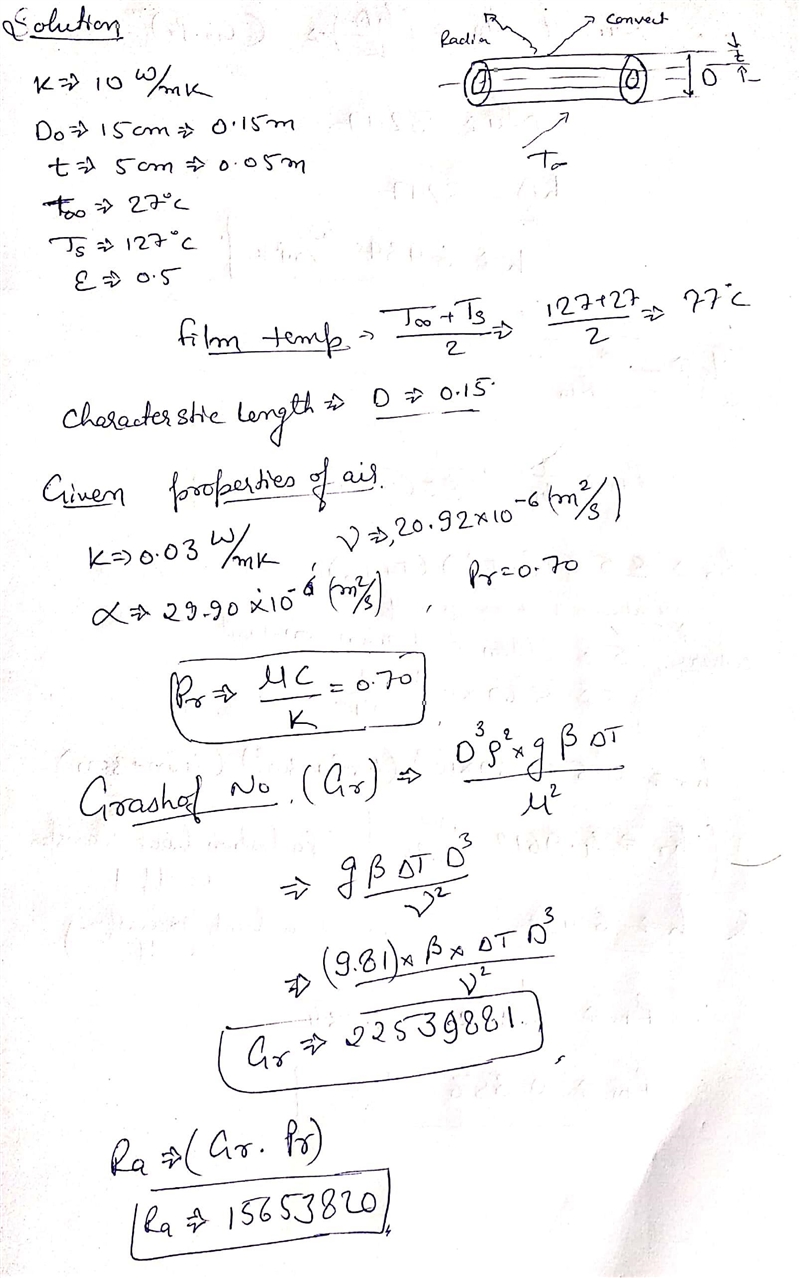 Solution
Radia
Convect
D
t
T∞
K ⇒ 10 W/mK
Do ⇒ 15cm ⇒ 0.15m
t ⇒ 5cm ⇒ 0.05m
t∞ ⇒ 27°C
Ts ⇒ 127°C
ε ⇒ 0.5
film temp → (T∞ + Ts)/2 ⇒ (127+27)/2 ⇒ 77°C
Characterstic Length ⇒ D ⇒ 0.15
Given properties of air.
K ⇒ 0.03 W/mK , ν ⇒ 20.92×10^-6 (m²/s)
α ⇒ 29.90×10^-6 (m²/s) , Pr = 0.70
Pr ⇒ μC/K = 0.70
Grashof No. (Gr) ⇒ D³ρ²×gβΔT/μ²
⇒ gβΔTD³/ν²
⇒ (9.81)×β×ΔTD³/ν²
Gr ⇒ 22539881.
Ra ⇒ (Gr. Pr)
Ra ⇒ 15653820